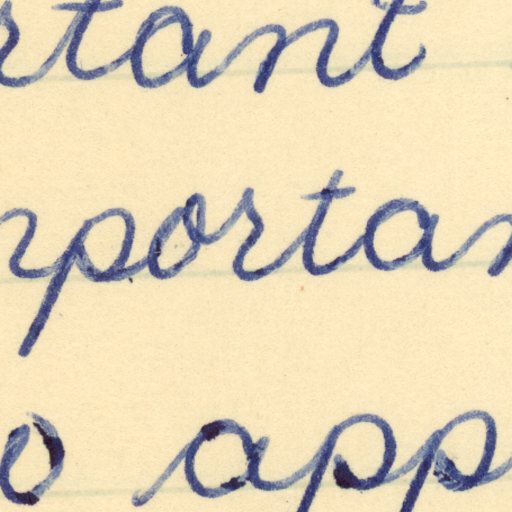 rtant
mportan
o app